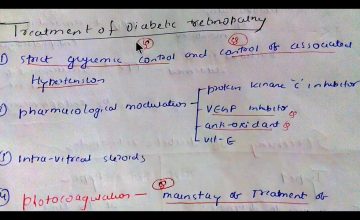 Treatment of Diabetic retinopathy
① strict glycemic control and control of associated
Hypertension
② pharmacological modulation - protein kinase 'c' inhibitor
VEGF inhibitor
anti-oxidant
vit-E
③ intra-vitreal steroids
④ photocoagulation - mainstay of Treatment of